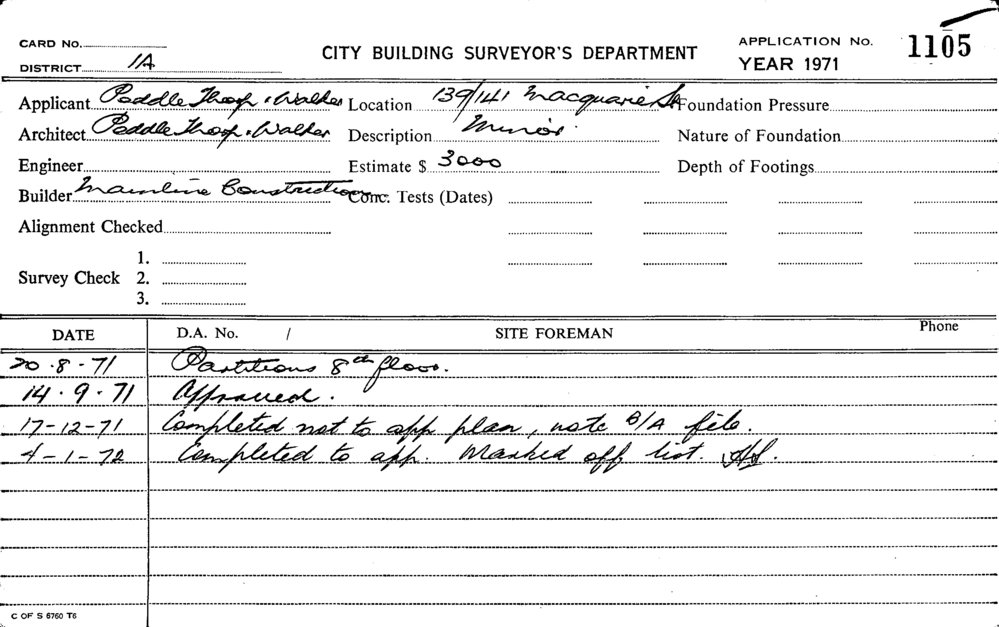 CARD No.
DISTRICT 1A
CITY BUILDING SURVEYOR'S DEPARTMENT
APPLICATION No. 1105
YEAR 1971
Applicant Peddle Thorp & Walker Location 139/141 Macquarie St Foundation Pressure
Architect Peddle Thorp & Walker Description Minor. Nature of Foundation
Engineer Estimate $ 3000 Depth of Footings
Builder Mainline Construction Conc. Tests (Dates)
Alignment Checked
Survey Check 1.
2.
3.
DATE D.A. No. / SITE FOREMAN Phone
20.8.71 Partitions 8th floor.
14.9.71 Approved.
17-12-71 Completed not to app plan, note B/A file.
4-1-72 Completed to app. Marked off list.
C OF S 6760 T6